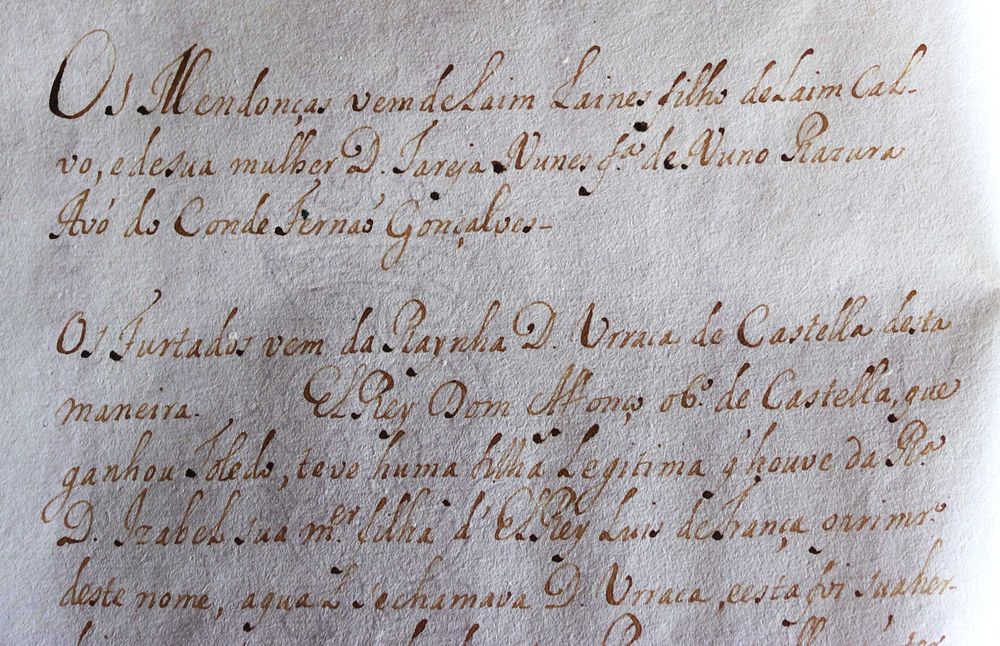 Os Mendonças vem de Laim Laines filho de Laim Cal-
vo, e de sua mulher D. Tareja Nunes fª. de Nuno Razura
Avó do Conde Fernaõ Gonçalves-
Os Furtados vem da Raynha D. Urraca de Castella desta
maneira. El Rey Dom Affonço o 6º. de Castella, que
ganhou Toledo, teve huma filha Legitima q̃ houve da Rª.
D. Izabel sua m.er filha d' El Rey Luis de França o primrº.
deste nome, aqual se chamava D. Urraca, e esta foi sua her-